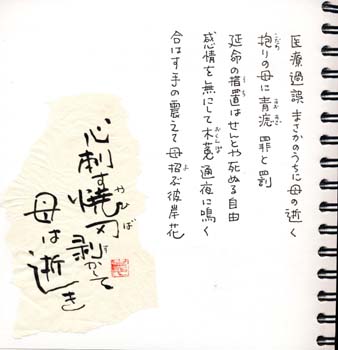 医療過誤 まさかのうちに母の逝く
りの母に青痣 罪と罰
延命の措置はせんとや死ぬる自由
感情を無にして木菟通夜に鳴く
合はす手の震えて母招ぶ彼岸花
心刺す
焼刃
剥かして
母は逝き